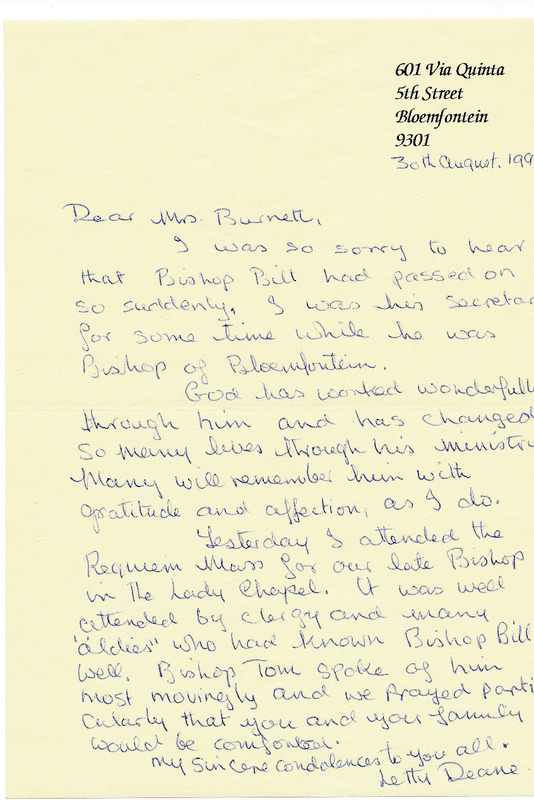 601 Via Quinta
5th Street
Bloemfontein
9301
30th August. 199
Dear Mrs. Burnett,
I was so sorry to hear
that Bishop Bill had passed on
so suddenly. I was his secretar
for some time while he was
Bishop of Bloemfontein.
God has worked wonderfull
through him and has changed
so many lives through his ministr
Many will remember him with
gratitude and affection, as I do.
Yesterday I attended the
Requiem Mass for our late Bishop
in the Lady Chapel. It was well
attended by clergy and many
"oldies" who had known Bishop Bill
well. Bishop Tom spoke of him
most movingly and we prayed parti
cularly that you and your family
would be comforted.
My sincere condolences to you all.
Letty Deane.